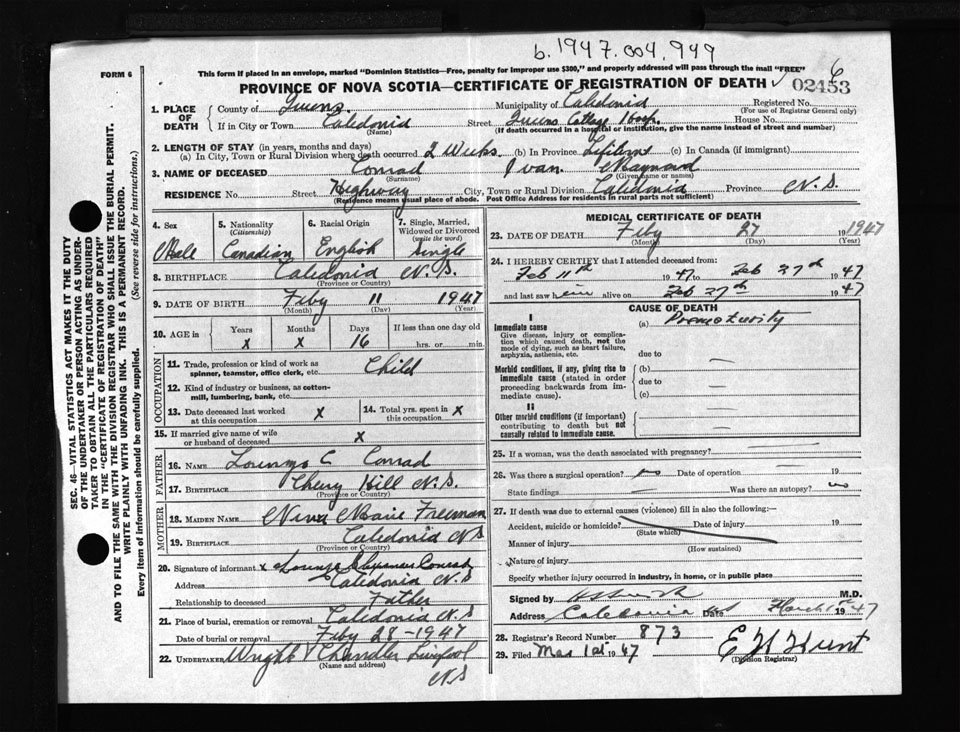 b. 1947.004,949
FORM 6
This form if placed in an envelope, marked "Dominion Statistics—Free, penalty for improper use $300," and properly addressed will pass through the mail "FREE"
PROVINCE OF NOVA SCOTIA—CERTIFICATE OF REGISTRATION OF DEATH 02453
6
SEC. 46—VITAL STATISTICS ACT MAKES IT THE DUTY
OF THE UNDERTAKER OR PERSON ACTING AS UNDER-
TAKER TO OBTAIN ALL THE PARTICULARS REQUIRED
IN THE "CERTIFICATE OF REGISTRATION OF DEATH"
AND TO FILE THE SAME WITH THE DIVISION REGISTRAR WHO SHALL ISSUE THE BURIAL PERMIT.
WRITE PLAINLY WITH UNFADING INK. THIS IS A PERMANENT RECORD.
Every item of information should be carefully supplied. (See reverse side for instructions.)
1. PLACE OF DEATH { County of Queens Municipality of Caledonia Registered No.
(For use of Registrar General only)
If in City or Town Caledonia Street Queens Cottage Hosp. House No.
(Name) (If death occurred in a hospital or institution, give the name instead of street and number)
2. LENGTH OF STAY (in years, months and days)
(a) In City, Town or Rural Division where death occurred 2 Weeks (b) In Province Lifetime (c) In Canada (if immigrant)
3. NAME OF DECEASED Conrad Ivan Maynard
(Surname) (Given name or names)
RESIDENCE No. Street Highway City, Town or Rural Division Caledonia Province N.S.
(Residence means usual place of abode. Post Office Address for residents in rural parts not sufficient)
4. Sex Male
5. Nationality (Citizenship) Canadian
6. Racial Origin English
7. Single, Married, Widowed or Divorced (write the word) Single
8. BIRTHPLACE Caledonia N.S.
(Province or Country)
9. DATE OF BIRTH Feby 11 1947
(Month) (Day) (Year)
10. AGE in { Years x Months x Days 16 If less than one day old hrs. or min.
OCCUPATION
11. Trade, profession or kind of work as spinner, teamster, office clerk, etc. Child
12. Kind of industry or business, as cotton-mill, lumbering, bank, etc.
13. Date deceased last worked at this occupation x
14. Total yrs. spent in this occupation x
15. If married give name of wife or husband of deceased x
FATHER
16. NAME Lorenzo C Conrad
17. BIRTHPLACE Cherry Hill N.S.
(Province or Country)
MOTHER
18. MAIDEN NAME Nina Marie Freeman
19. BIRTHPLACE Caledonia N S
(Province or Country)
20. Signature of informant x Conrad
Address Caledonia N.S
Relationship to deceased Father
21. Place of burial, cremation or removal Caledonia N.S
Date of burial or removal Feby 28-1947
22. UNDERTAKER Wright & Chandler Liverpool
(Name and address)
N S
MEDICAL CERTIFICATE OF DEATH
23. DATE OF DEATH Feby 27 1947
(Month) (Day) (Year)
24. I HEREBY CERTIFY that I attended deceased from:
Feb 11th 1947 to Feb 27th 1947
and last saw him alive on Feb 27th 1947
CAUSE OF DEATH
I
Immediate cause (a) Prematurity
Give disease, injury or complication which caused death, not the mode of dying, such as heart failure, asphyxia, asthenia, etc.
due to —
Morbid conditions, if any, giving rise to immediate cause (stated in order proceeding backwards from immediate cause).
(b)
due to —
(c)
II
Other morbid conditions (if important) contributing to death but not causally related to immediate cause.
25. If a woman, was the death associated with pregnancy?
26. Was there a surgical operation? no Date of operation — 19
State findings — Was there an autopsy? no
27. If death was due to external causes (violence) fill in also the following:—
Accident, suicide or homicide? Date of injury 19
(State which)
Manner of injury
(How sustained)
Nature of injury
Specify whether injury occurred in industry, in home, or in public place
Signed by M.D.
Address Caledonia NS Date March 1st 1947
28. Registrar's Record Number 873
29. Filed Mar 1st 1947 E H Hunt
(Division Registrar)